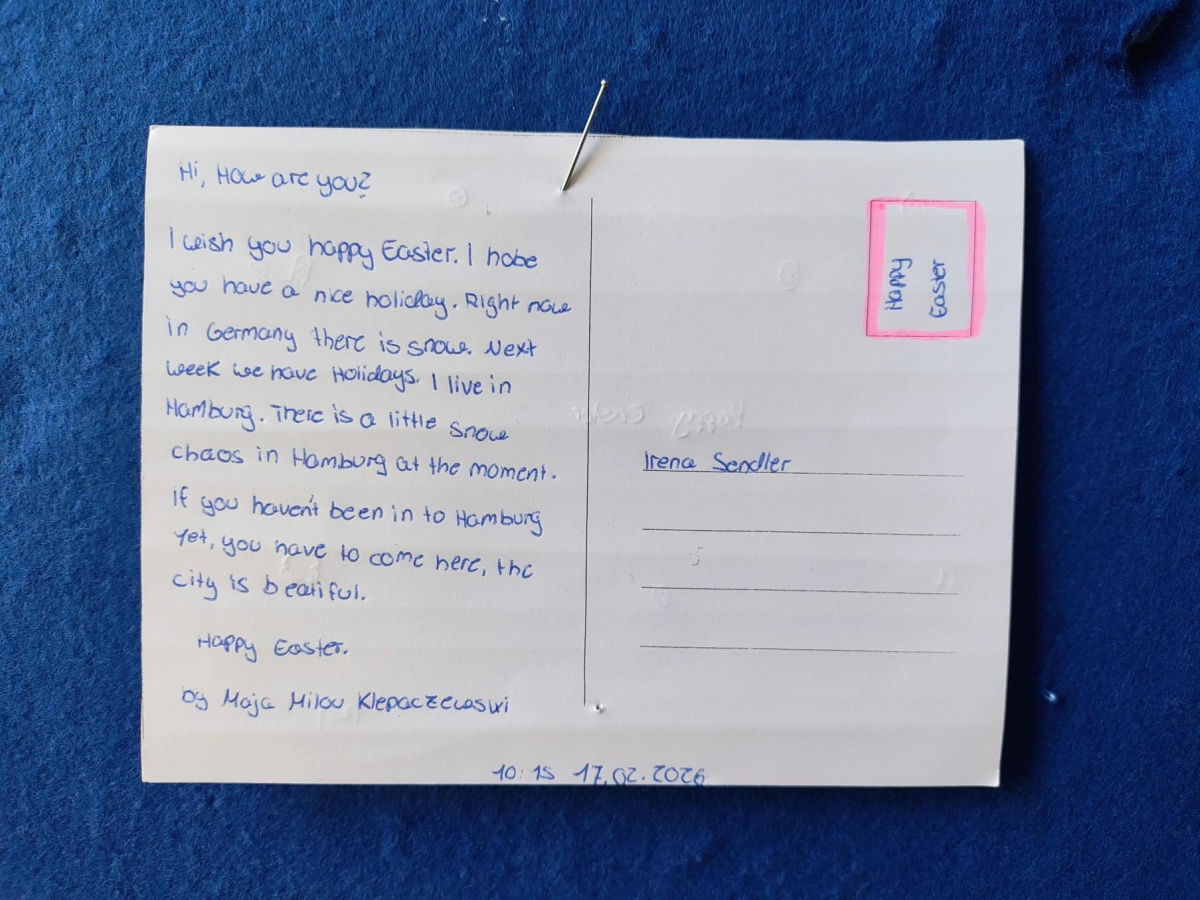 Hi, How are you?
I wish you happy Easter. I hobe
you have a nice holiday. Right now
in Germany there is snow. Next
week we have Holidays. I live in
Hamburg. There is a little snow
chaos in Hamburg at the moment.
If you haven't been in to Hamburg
Yet, you have to come here, the
city is beatiful.
Happy Easter.
by Maja Milou Klepaczewski
10:15 17.02.2026
Happy
Easter
Irena Sendler